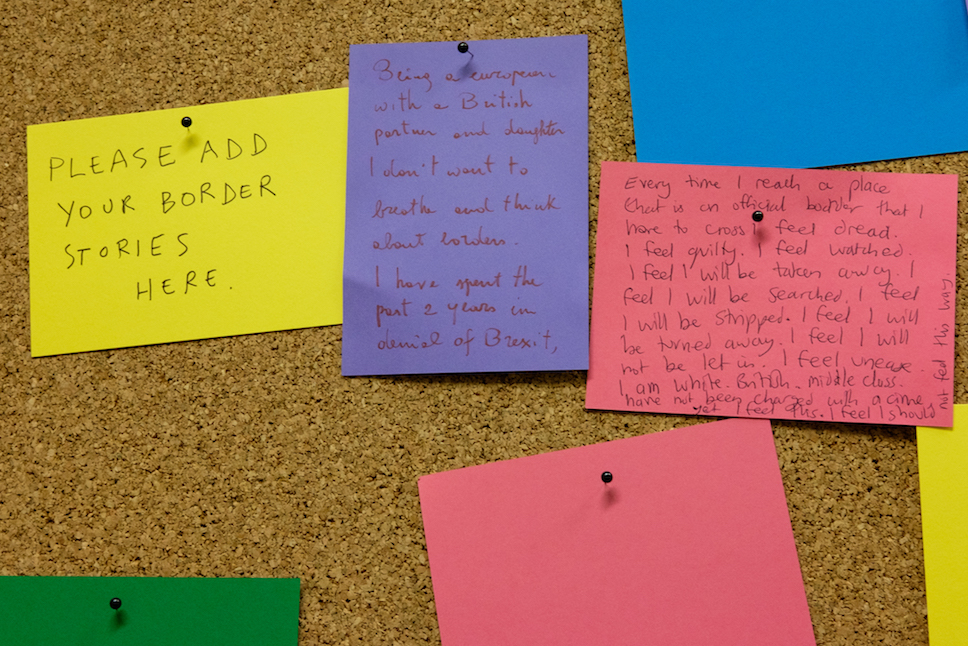 PLEASE ADD
YOUR BORDER
STORIES
HERE.
Being a european
with a British
partner and daughter
I don't want to
breathe and think
about borders.
I have spent the
past 2 years in
denial of Brexit,
Every time I reach a place
that is an official border that I
have to cross I feel dread.
I feel guilty. I feel watched.
I feel I will be taken away. I
feel I will be searched. I feel
I will be stripped. I feel I will
be turned away. I feel I will
not be let in. I feel unease.
I am white. British. middle class.
have not been charged with a crime
yet I feel this. I feel I should
not feel this way.